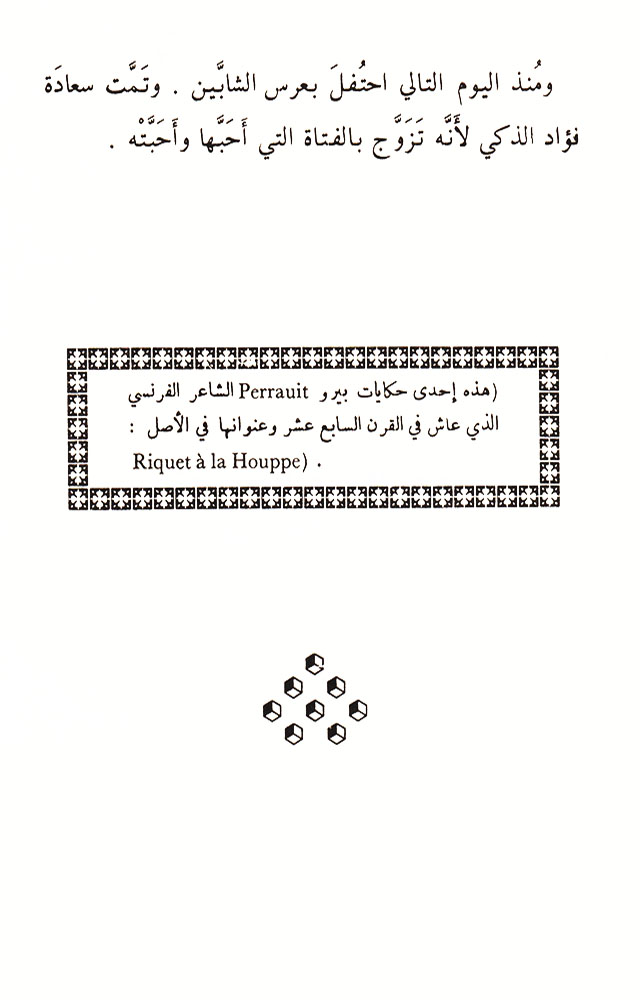 ومُنذ اليوم التالي احتُفلَ بعرس الشابَّين . وتَمَّت سعادَة
فؤاد الذكي لأَنَّه تَزَوَّج بالفتاة التي أَحَبَّها وأَحَبَّتْه .
(هذه إحدى حكايات بيرو Perrauit الشاعر الفرنسي
الذي عاش في القرن السابع عشر وعنوانها في الأصل :
Riquet à la Houppe) .